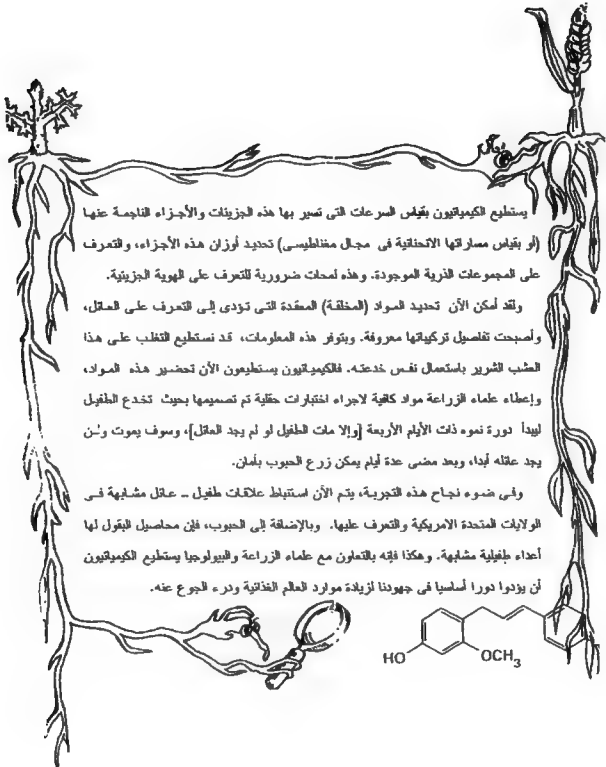 يستطيع الكيميائيون بقياس السرعات التى تسير بها هذه الجزيئات والأجزاء الناجمة عنها
(أو بقياس مساراتها الانحنائية فى مجال مغناطيسى) تحديد أوزان هذه الأجزاء، والتعرف
على المجموعات الذرية الموجودة. وهذه لمحات ضرورية للتعرف على الهوية الجزيئية.
ولقد أمكن الآن تحديد المواد (المخلقة) المعقدة التى تؤدى إلى التعرف على العائل،
وأصبحت تفاصيل تركيباتها معروفة. وبتوفر هذه المعلومات، قد نستطيع التغلب على هذا
العشب الشرير باستعمال نفس خدعته. فالكيميائيون يستطيعون الآن تحضير هذه المواد،
وإعطاء علماء الزراعة مواد كافية لاجراء اختبارات حقلية تم تصميمها بحيث تخدع الطفيل
ليبدأ دورة نموه ذات الأيام الأربعة [وإلا مات الطفيل لو لم يجد العائل]، وسوف يموت ولن
يجد عائله أبدا، وبعد مضى عدة أيام يمكن زرع الحبوب بأمان.
وفى ضوء نجاح هذه التجربة، يتم الآن استنباط علاقات طفيل – عائل مشابهة فى
الولايات المتحدة الامريكية والتعرف عليها. وبالإضافة إلى الحبوب، فإن محاصيل البقول لها
أعداء طفيلية مشابهة. وهكذا فإنه بالتعاون مع علماء الزراعة والبيولوجيا يستطيع الكيميائيون
أن يؤدوا دورا أساسيا فى جهودنا لزيادة موارد العالم الغذائية ودرء الجوع عنه.
HO OCH₃